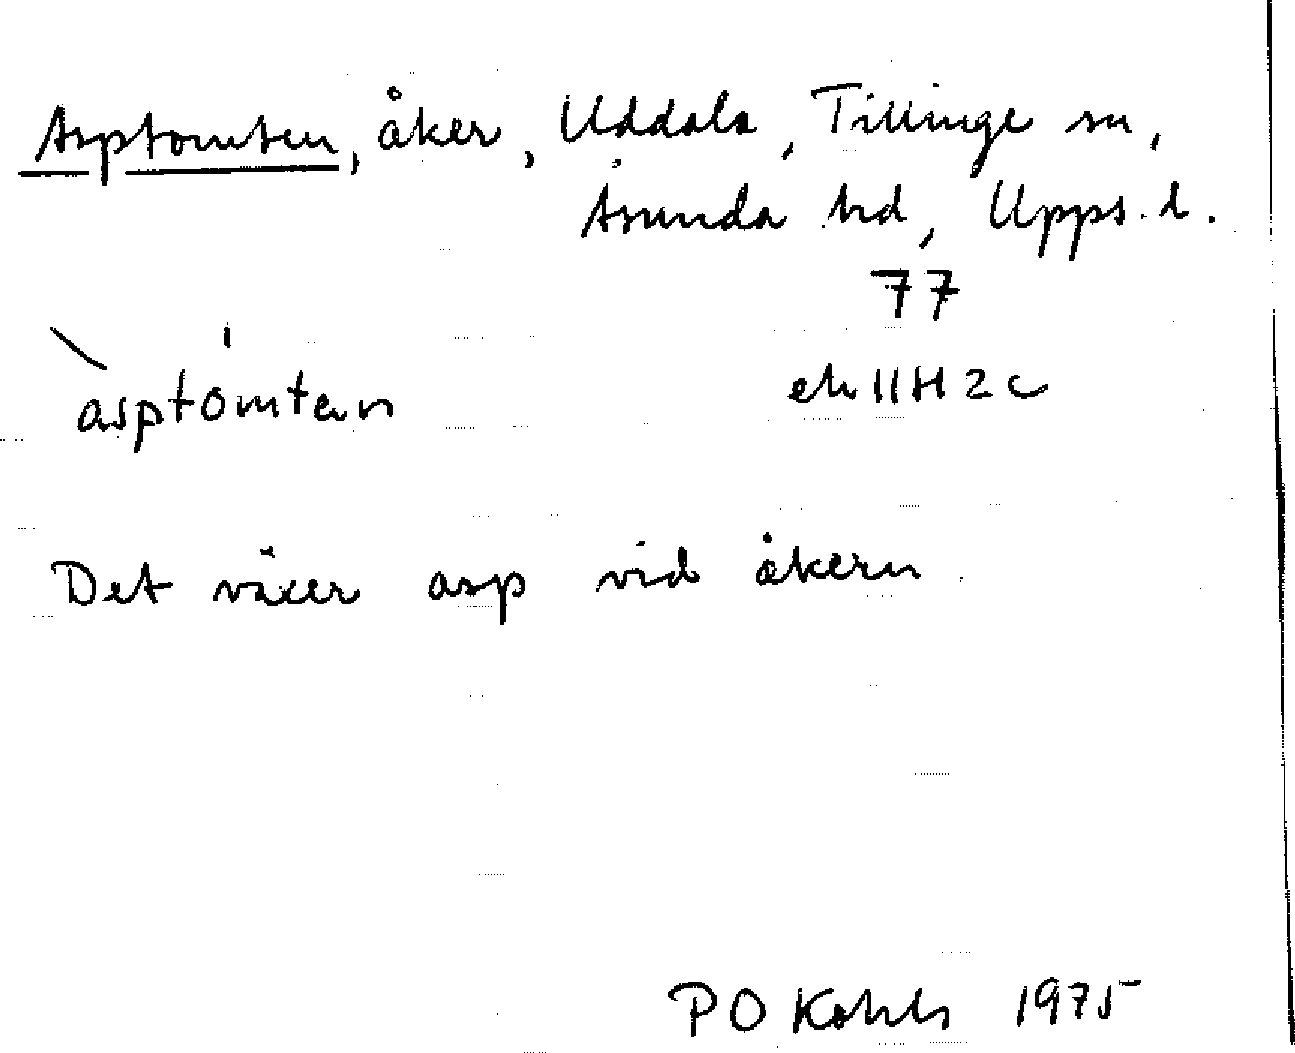 Asptomten, åker, Uddala, Tillinge sn,
Åsunda hd, Upps. l.
77
asptomtan
ek 11H2c
Det växer asp vid åkern.
PO 1975